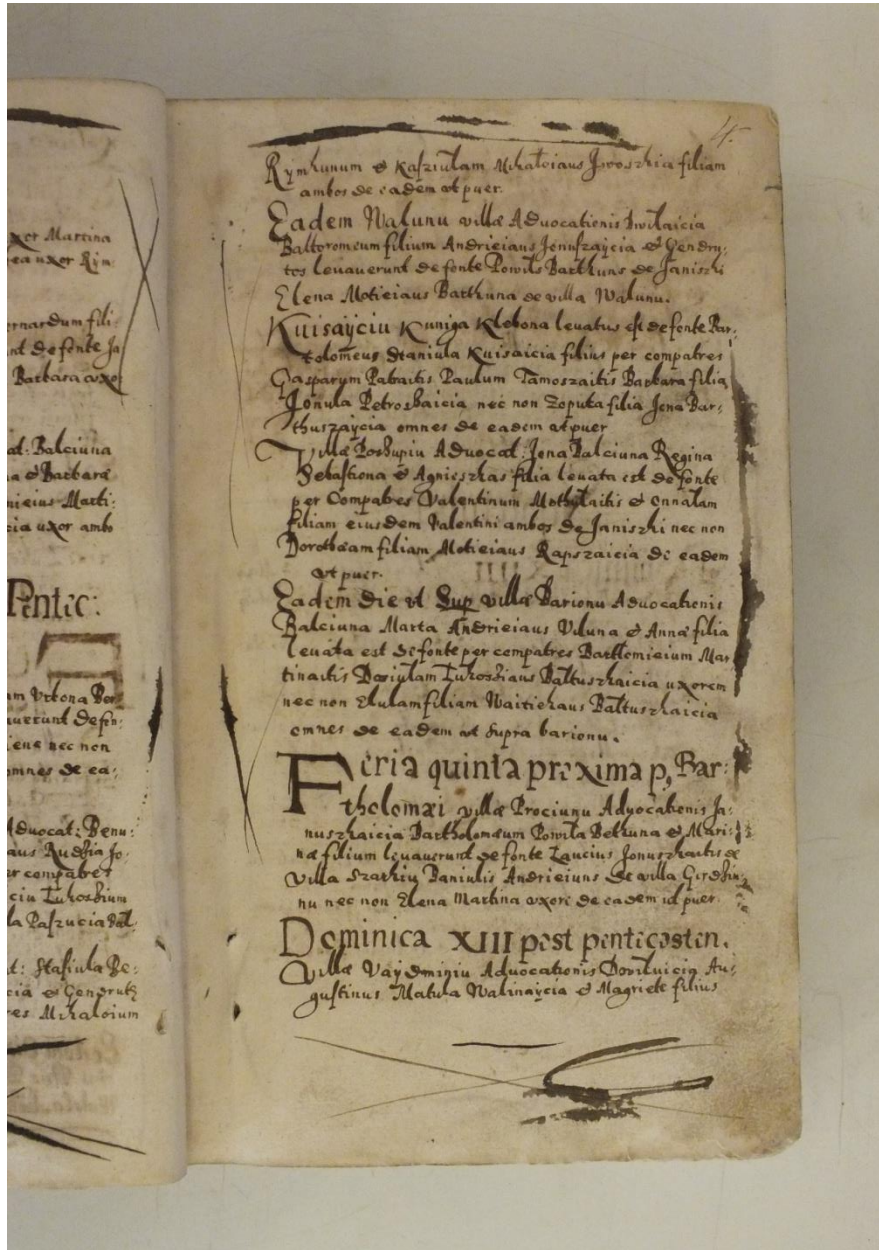 xor Martina
ea uxor Rin
ernardum fili:
nt de fonte Ja
Barbara uxor
at: Balciuna
na & Barbaræ
nieius Marti:
cia uxor ambo
Pentec:
am Urbona Bar
auerunt de fon:
iene nec non
omnes de ea:
Aduocat: Benu:
aus Rudkia Jo:
er compatres
ciu Lukoskium
la Paszucia Bal
t: Stasiula Be:
cia & Gendrutę
res Mikaloium
4.
Rymkunum & Kasziulam Mikaloiaus Jwoszkia filiam
ambos de eadem ut puer.
Eadem Walunu villæ Aduocationis Dwilaicia
Baltoromeum filium Andrieiaus Jonuszaycia & Gendru:
tos leuauerunt de fonte Powils Barthuns de Janiszki
Elena Motieiaus Barthuna de villa Walunu.
Kuisaÿciu Kuniga Klebona leuatus est de fonte Bar:
tolomeus Staniula Kuisaicia filius per compatres
Gasparum Patraitis Paulum Tamoszaitis Barbara filia
Jonula Petroskaicia nec non Zoputa filia Jena Bar:
thuszaÿcia omnes de eadem ut puer
Villæ Poskupiu Aduocat: Jona Balciuna Regina
Sebastiona & Agnieszkas filia leuata est de fonte
per Compatres Valentinum Mothylaitis & Onnalam
filiam eiusdem Valentini ambos de Janiszki nec non
Dorotheam filiam Motieiaus Rapszaicia de eadem
ut puer.
Eadem die ut Sup villæ Barionu Aduocationis
Balciuna Marta Andrieiaus Viluna & Annæ filia
leuata est de fonte per compatres Bartlomieium Mar
tinaitis Dosiulam Lukoskiaus Baltuszkaicia uxorem
nec non Elulam filiam Waitiekaus Baltuszkaicia
omnes de eadem ut supra barionu.
Feria quinta proxima p, Bar:
tholomæi villæ Prociunu Aduocationis Ja:
nuszkaicia Bartholomæum Powila Bekuna & Mari:
næ filium leuauerunt de fonte Laucius Jonuszkaitis de
villa Szathiu Daniulis Andrieiuns de villa Girdkiu:
nu nec non Elena Martina uxore de eadem ut puer.
Dominica XIII post pentecosten.
Villæ Vaydminiu Aduocationis Doviluicia Au:
gustinus Matula Walinaÿcia & Magrietæ filius